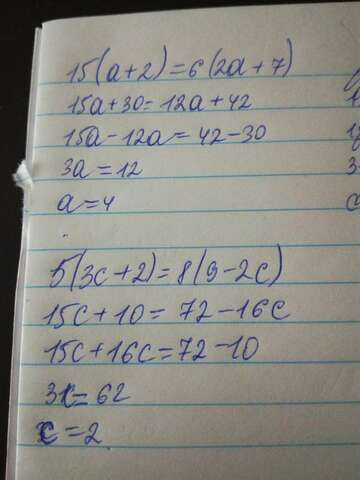 15(a+2)=6(2a+7)
15a+30=12a+42
15a-12a=42-30
3a=12
a=4
5(3c+2)=8(9-2c)
15c+10=72-16c
15c+16c=72-10
31c=62
c=2